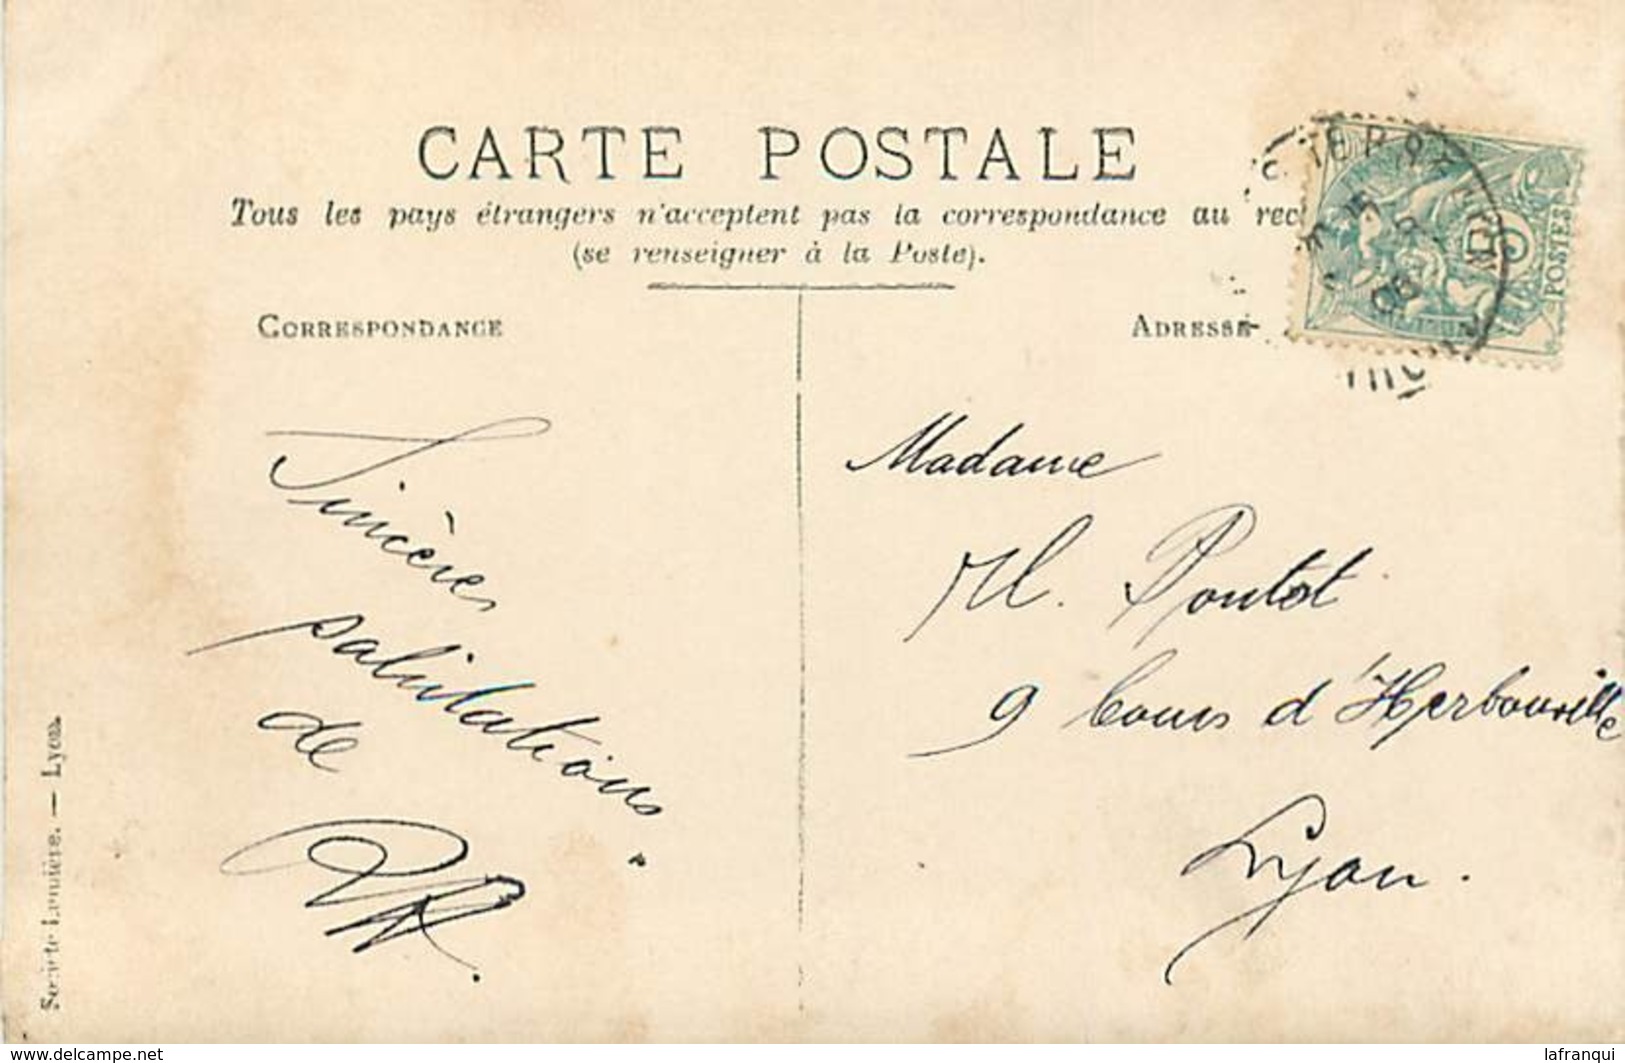 CARTE POSTALE
Tous les pays étrangers n'acceptent pas la correspondance au rec
(se renseigner à la Poste).
CORRESPONDANCE
ADRESSE
POSTES
5
06
Sincères
salutations
de
Madame
M. Pontot
9 Cours d'Herbouville
Lyon.
Société Lumière. — Lyon.
www.delcampe.net
lafranqui